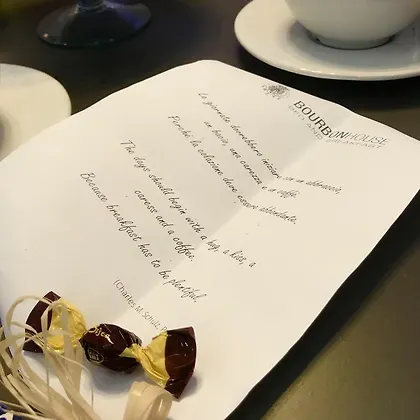 BOURBONHOUSE
BED AND BREAKFAST
Le giornate dovrebbero iniziare con un abbraccio,
un bacio, una carezza e un caffè.
Perché la colazione deve essere abbondante.
The days should begin with a hug, a kiss, a
caress and a coffee.
Because breakfast has to be plentiful.
(Charles M. Schulz,